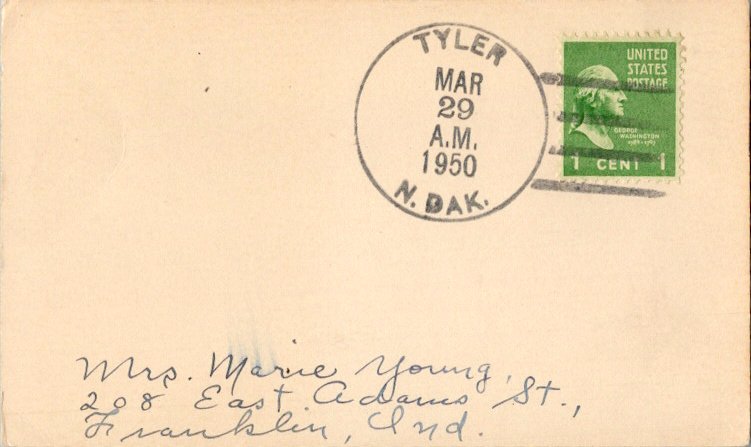 TYLER
MAR
29
A.M.
1950
N. DAK.
UNITED
STATES
POSTAGE
GEORGE
WASHINGTON
1 CENT 1
Mrs. Marie Young,
208 East Adams St.,
Franklin, Ind.